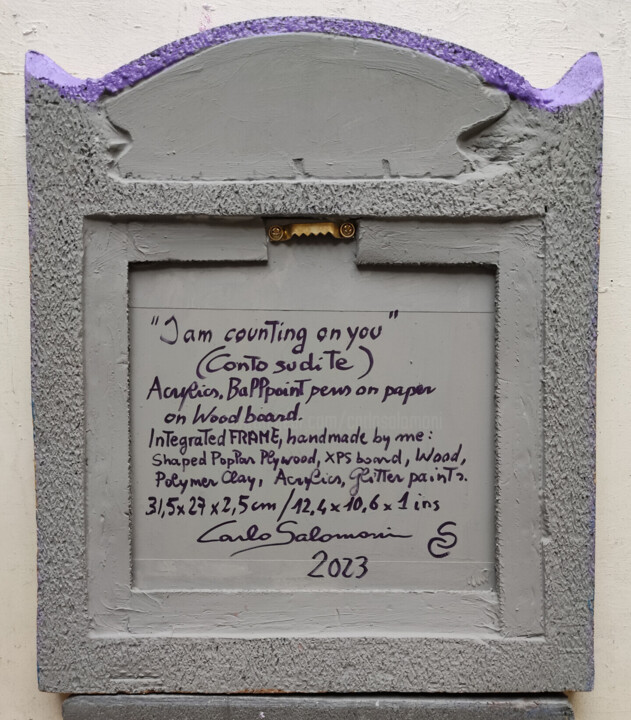 "I am counting on you"
(Conto su di te)
Acrylics, Ballpoint pens on paper
on Wood board.
Integrated FRAME, handmade by me:
Shaped Poplar Plywood, XPS board, Wood,
Polymer Clay, Acrylics, Glitter paints.
31,5 x 27 x 2,5 cm / 12,4 x 10,6 x 1 ins
Carlo Salomoni
2023